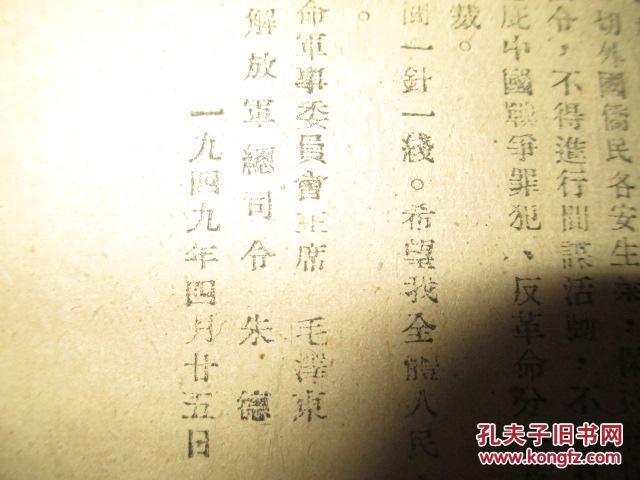 切外國僑民各安生業，保
令，不得進行間諜活動，不
庇中國戰爭罪犯、反革命分
裁。
間一針一綫。希望我全體人民
。
命軍事委員會主席　毛澤東
解放軍總司令　朱德
一九四九年四月廿五日
孔夫子旧书网
www.kongfz.com